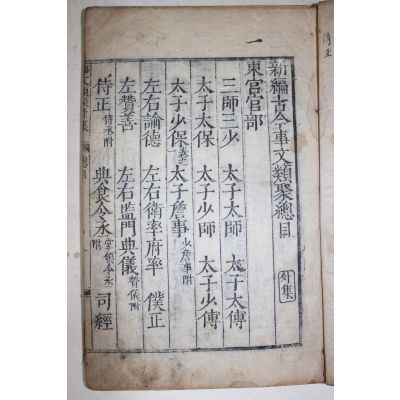 新編古今事文類聚總目 外集
東宮官部
三師三少 太子太師 太子太傅
太子太保 太子少師 太子少傅
太子少保 太子詹事 少詹事附
左右諭德 左右衛率府率 僕正
左贊善 左右監門典儀 贊儀附
侍正 侍丞附 典食令丞 司經
一
侍正